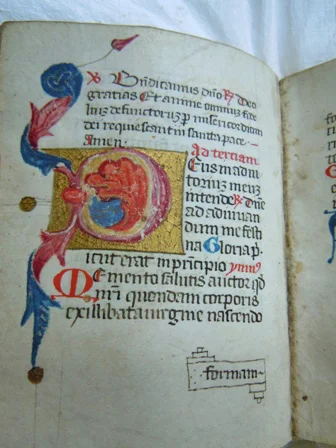 ℣ Bn̄dicamus dn̄o ℟ Deo
gratias Et anime omniuz fide
liuz defunctoruz p misericordiam
dei requiescant in santa pace
Amen
Ad terciam
Deus in adiu
torium meuz
intende ℟ Dn̄e
ad adiuuan
dum me festi
na Gloria p
icut erat in principio ymn
Memento salutis auctor qd
nr̄i quondam corporis
ex illibata uirgine nascendo
formam